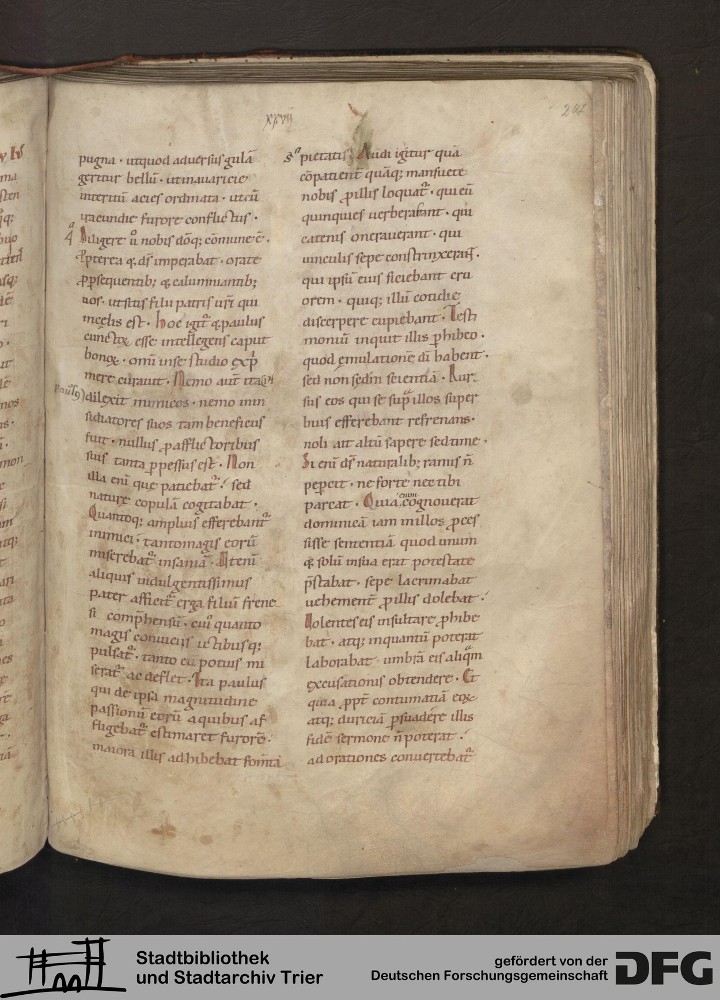 xxvij
pugna · utquod adversus gulā
geritur bellū · utinavaricie
interitū acies ordinata · utcū
iracundie furore conflictus ·
Diligere ū nobis dōq; cōmune ē ·
ꝓpterea q. ds̄ imperabat · orate
ꝓpsequentib; & calumniantib;
vos · utsitis filii patris vr̄i qui
incęlis est · hoc igit᷑ & paulus
cunctoꝝ esse intellegens caput
bonoꝝ · omni inse studio exp̄
mere curavit · Nemo aut̄ ita
dilexit inimicos · nemo insi
diatores suos tam beneficus
fuit · nullus ꝓ afflictoribus
suis tanta ꝑpessus est · Non
illa eni que patiebat᷑ · sed
nature copulā cogitabat ·
Quantoq; amplius efferebant᷑
inimici · tantomagis eorū
miserebat᷑ insaniā · Utenī
aliquis indulgentissimus
pater afficit᷑ erga filiū frene
si compħensū · eūq quanto
magis conviciis ictibusq;
pulsat᷑ · tanto eū potius mi
serat᷑ ac deflet · Ita paulus
qui de ipsa magnitudine
passionū eorū a quibus af
fligebat᷑ estimaret furorē ·
maiora illis adhibebat fomta
pietatis · Audi igitur quā
cōpatient̄ quāq; mansuete
nobis ꝓ illis loquat᷑ · qui eū
quinquies verberabant · qui
catenis oneraverant · qui
vinculis sepe constrinxerant ·
qui ipsū eius siciebant cru
orem · quiq; illū cotidie
discerpere cupiebant · Testi
moniū inquit illis ꝑhibeo ·
quod emulationē dī habent ·
sed non sedm̄ scientiā · Rur
sus eos qui se sup illos super
buis efferebant refrenans ·
noli ait altū sapere sed time ·
Si enī ds̄ naturalib; ramis n̄
pepcit · ne forte nec tibi
parcat · Quia enim cognoverat
dominicā iam inillos ꝓces
sisse sententiā quod unum
& solū insua erat potestate
p̄stabat · sepe lacrimabat
vehement̄ ꝓ illis dolebat ·
Volentes eis insultare ꝓhibe
bat · atq; inquantū poterat
laborabat · umbrā eis aliqm
excusationis obtendere · Et
quia ꝓpt̄ contumatiā eoꝝ
atq; duriciā ꝑsuadere illis
fidē sermone n̄ poterat ·
ad orationes convertebat᷑
Stadtbibliothek
und Stadtarchiv Trier
gefördert von der
Deutschen Forschungsgemeinschaft
DFG